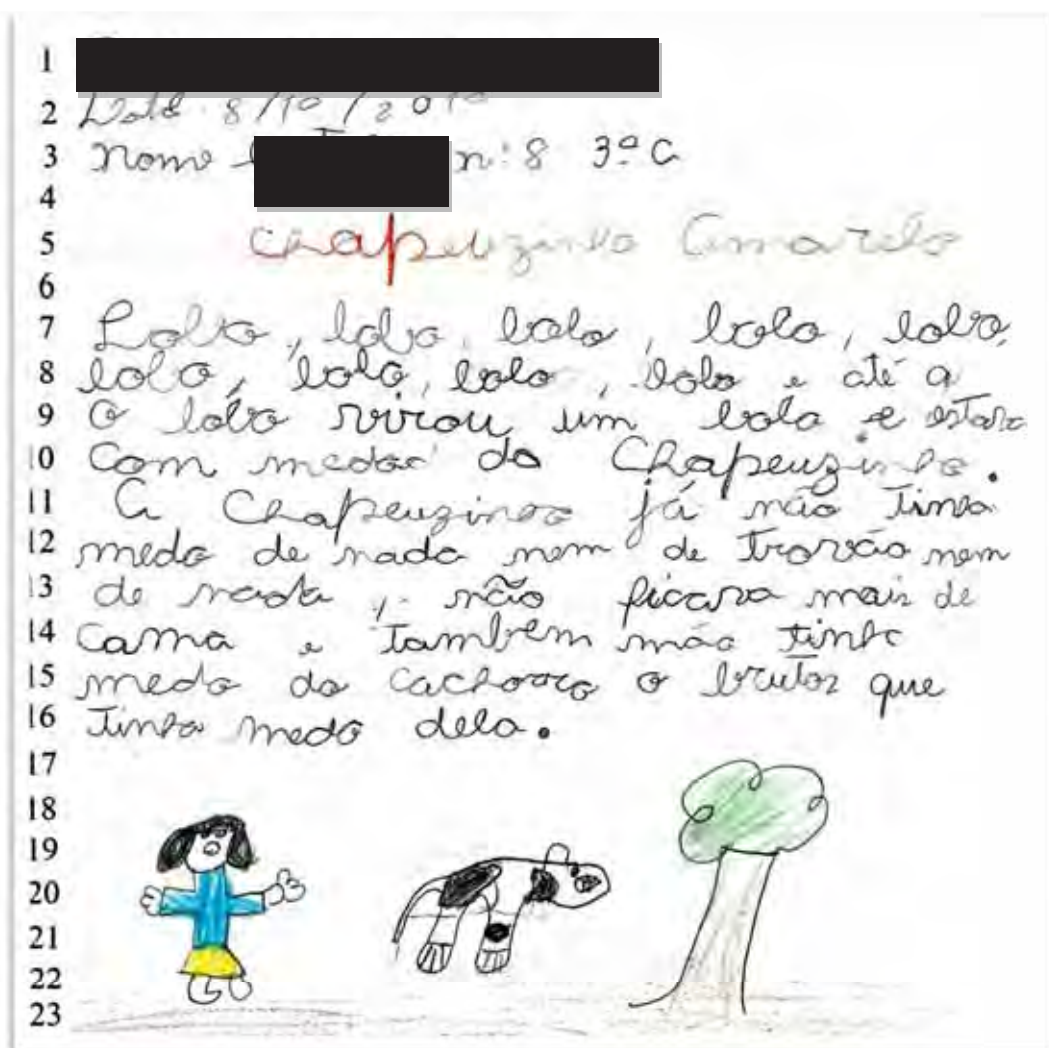 1
2 Data 8/10/2010
3 Nome n: 8 3º C
4
5 Chapeuzinho Amarelo
6
7 Lobo, lobo, bolo, bolo, lobo,
8 lobo, lobo, bolo, bolo e até q
9 O lobo virou um bolo e estava
10 Com medo da Chapeuzinho.
11 A Chapeuzinho já não tinha
12 medo de nada nem de trovão nem
13 de nada, não ficava mais de
14 cama e também não tinha
15 medo do cachorro o brutos que
16 tinha medo dela.
17
18
19
20
21
22
23